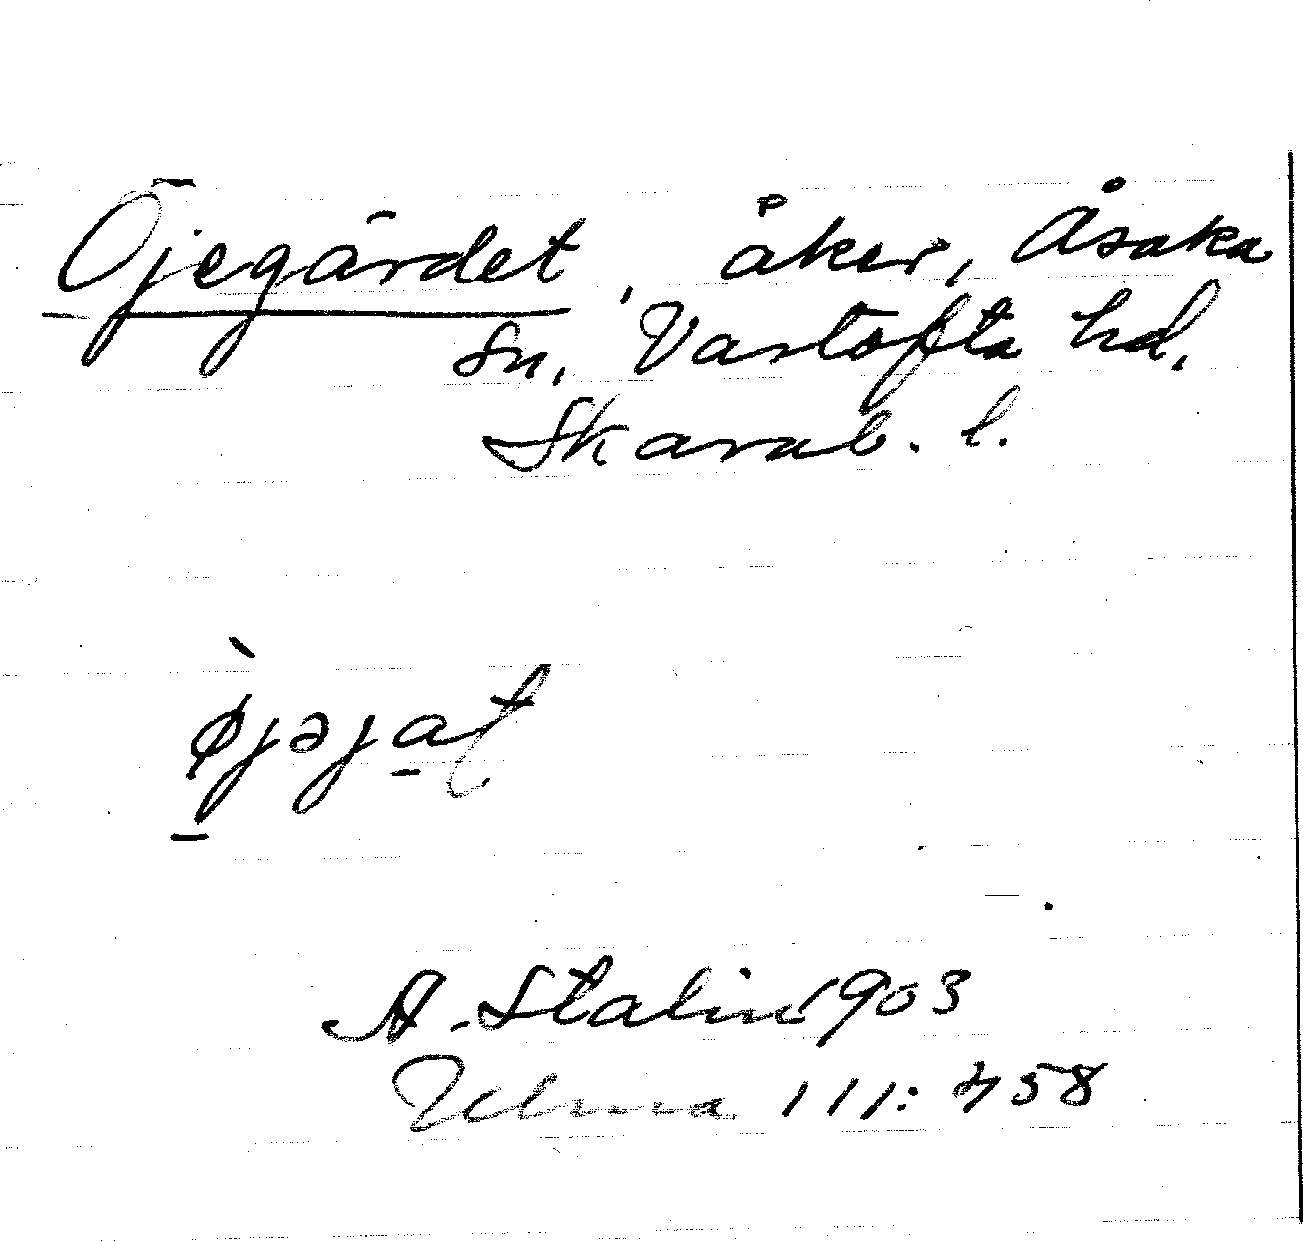 Öjegärdet, åker, Åsaka
sn, Vartofta hd,
Skarab. l.
ø̱̀jəja̱t
A. Stalin 1903
Ulma 111: 458